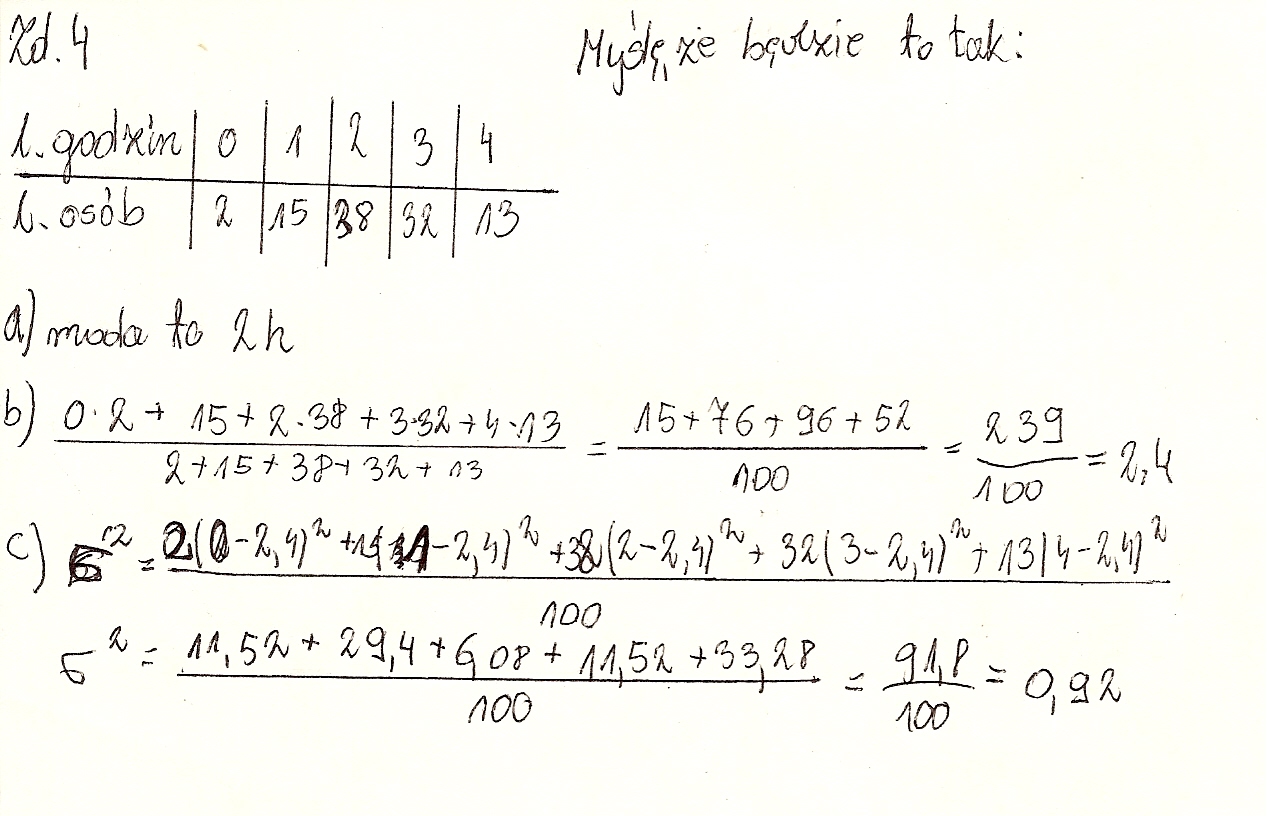 Zd. 4
Myślę, że będzie to tak:
l. godzin | 0 | 1 | 2 | 3 | 4
l. osób | 2 | 15 | 38 | 32 | 13
a) moda to 2h
b) (0·2 + 15 + 2·38 + 3·32 + 4·13)/(2+15+38+32+13) = (15+76+96+52)/100 = 239/100 = 2,4
c) б² = (2(0-2,4)² + 15(1-2,4)² + 38(2-2,4)² + 32(3-2,4)² + 13(4-2,4)²)/100
б² = (11,52 + 29,4 + 6,08 + 11,52 + 33,28)/100 = 91,8/100 = 0,92